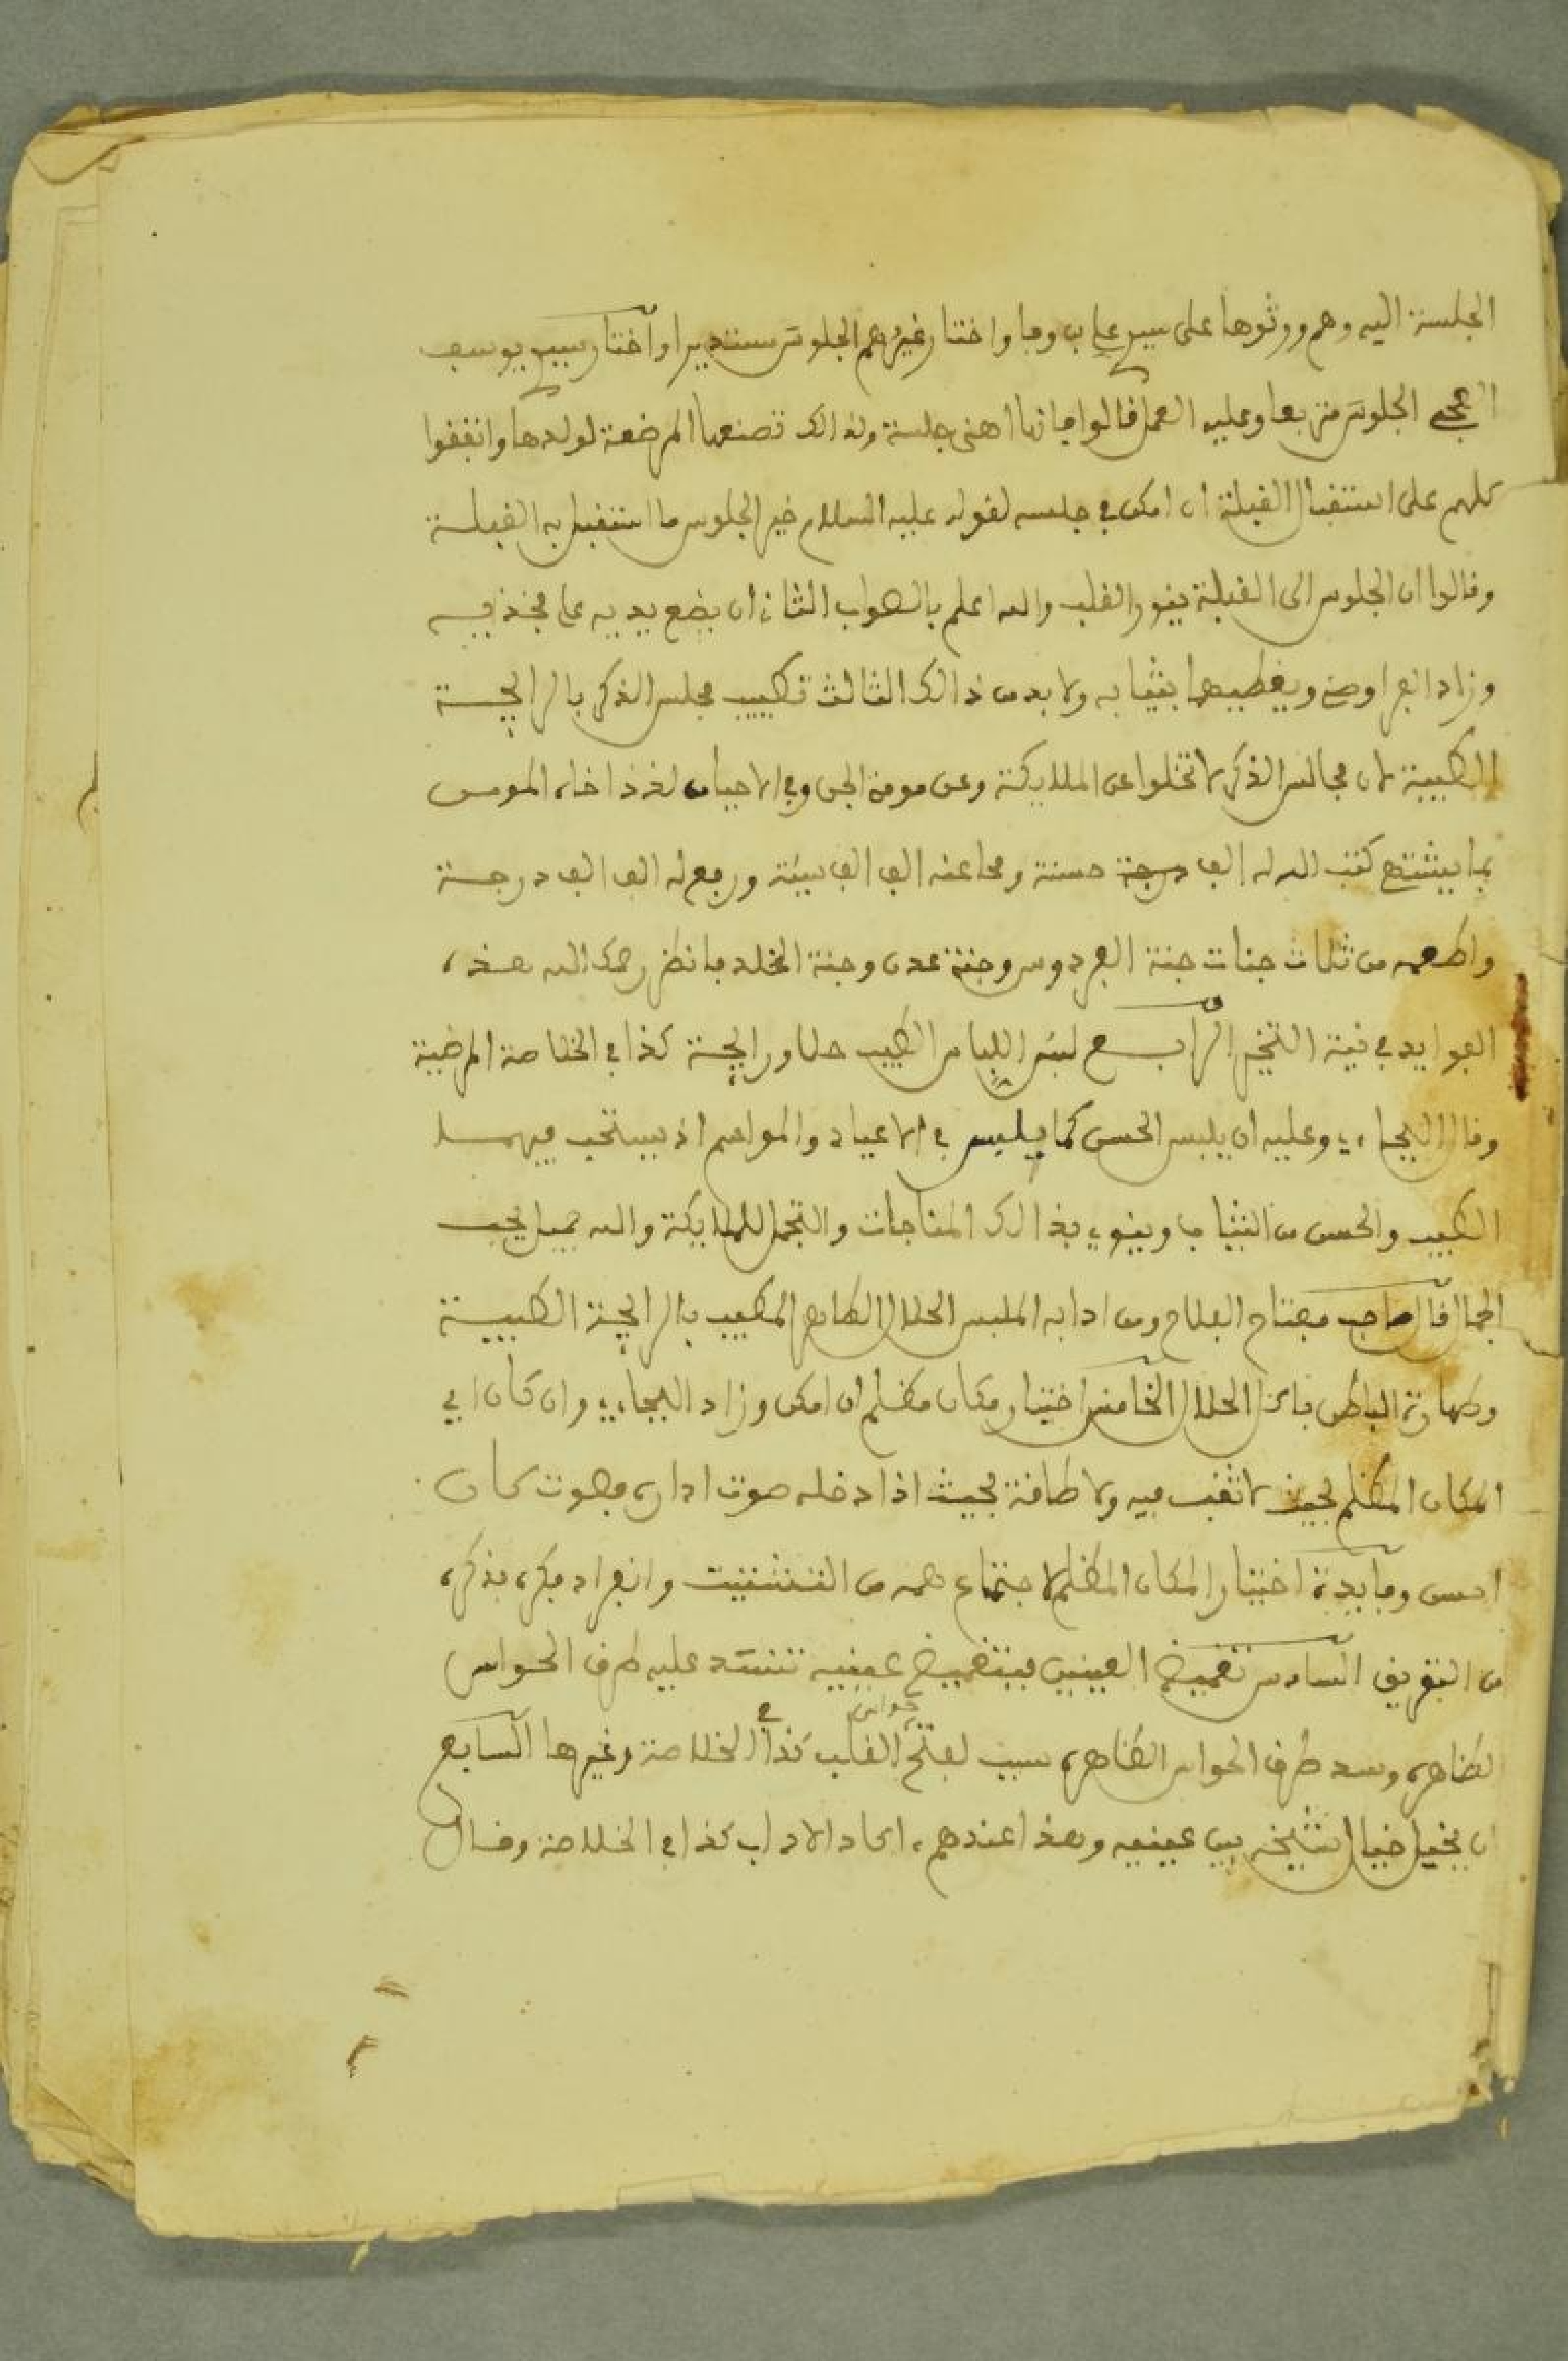 الجلسة اليه وهم ورثوها على سيدي علي بن وفا واختار غيرهم الجلوس مستديرا واختار سيدي يوسف
العجمي الجلوس متربعا وعليه العمل قالوا فانها اهنى جلسة ولذالك تصنعها المرضعة لولدها واتفقوا
كلهم على استقبال القبلة ان امكن في جلسه لقوله عليه السلام خير الجلوس ما استقبل به القبلة
وقالوا ان الجلوس الى القبلة ينور القلب والله اعلم بالصواب الثاني ان يضع يديه على فخذيه
وزاد الفراوصني ويغطيهما بثيابه ولا بد من ذالك الثالث تطييب مجلس الذكر بالرايحة
الطيبة لان مجالس الذكر لا تخلوا عن الملايكة وعن مومن الجن وفي الاحياء لذذ اخاه المومن
بما يشتهي كتب الله له الف درجة حسنة ومحا عنه الف الف سيئة ورفع له الف الف درجة
واطعمه من ثلاث جنات جنة الفردوس وجنة عدن وجنة الخلد فانظر رحمك الله هذه
الفوايد في نية التبخير الرابع لبس اللباس الطيب حلا ورايحة كذا في الخلاصة المرضية
وقال البجاءي وعليه ان يلبس الحسن كما يلبس في الاعياد والمواسم اذ يستحب فيهما
الطيب والحسن من الثياب وينوي بذالك المناجات والتجمل للملايكة والله جميل يحب
الجمال قال صاحب مفتاح الفلاح ومن ادابه الملبس الحلال الطاهر المطيب بالرايحة الطيبة
وطهارة الباطن باكل الحلال الخامس اختيار مكان مظلم ان امكن وزاد البجاءي وان كان في
المكان المظلم بحيث لا ثقب فيه ولا طاقة بحيث اذا دخله صوت اداره فصوت كان
احسن وفايدة اختيار المكان المظلم لاجتماع همه من التشتيت وانفراد فكره بذكره
من التفريق السادس تغميض العينين فبتغميض عينيه تنسد عليه طرق الحواس
لظاهرة وسد طرق الحواس الظاهرة سبب لفتح حواس القلب كذا في الخلاصة وغيرها السابع
ان يخيل خيال شيخه بين عينيه وهذا عندهم اكاد الاداب كذا في الخلاصة وقال